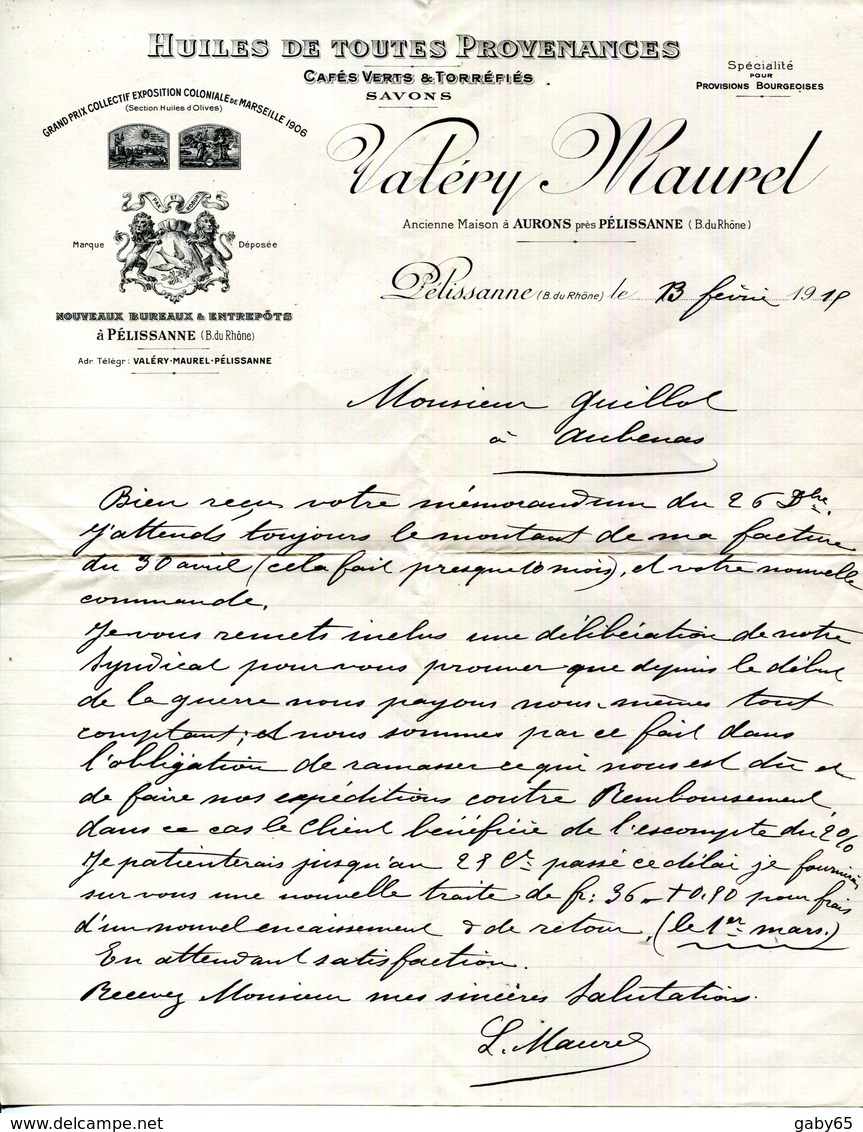 HUILES DE TOUTES PROVENANCES
CAFÉS VERTS & TORRÉFIÉS
SAVONS
Spécialité
POUR
PROVISIONS BOURGEOISES
GRAND PRIX COLLECTIF EXPOSITION COLONIALE DE MARSEILLE 1906
(Section Huiles d'Olives)
Valéry Maurel
Ancienne Maison à AURONS près PÉLISSANNE (B. du Rhône)
PAX ET ROBUR
Marque Déposée
NOUVEAUX BUREAUX & ENTREPÔTS
à PÉLISSANNE (B. du Rhône)
Adr. Télégr: VALÉRY-MAUREL-PÉLISSANNE
Pélissanne (B. du Rhône) le 13 février 1915
Monsieur Guillot
à Aubenas
Bien reçu votre mémorandum du 26 Dbre.
J'attends toujours le montant de ma facture
du 30 avril (cela fait presque 10 mois), et votre nouvelle
commande.
Je vous remets inclus une délibération de notre
Syndicat pour vous prouver que depuis le début
de la guerre nous payons nous-mêmes tout
comptant; et nous sommes par ce fait dans
l'obligation de ramasser ce qui nous est dû et
de faire nos expéditions contre Remboursement,
dans ce cas le Client bénéficie de l'escompte du 2%
Je patienterais jusqu'au 28 Ct passé ce délai je fournirai
sur vous une nouvelle traite de fr: 36 - + 0.90 pour frais
d'un nouvel encaissement & de retour, (le 1er mars.)
En attendant satisfaction.
Recevez Monsieur mes sincères Salutations.
L. Maurel
delcampe.net
gaby65